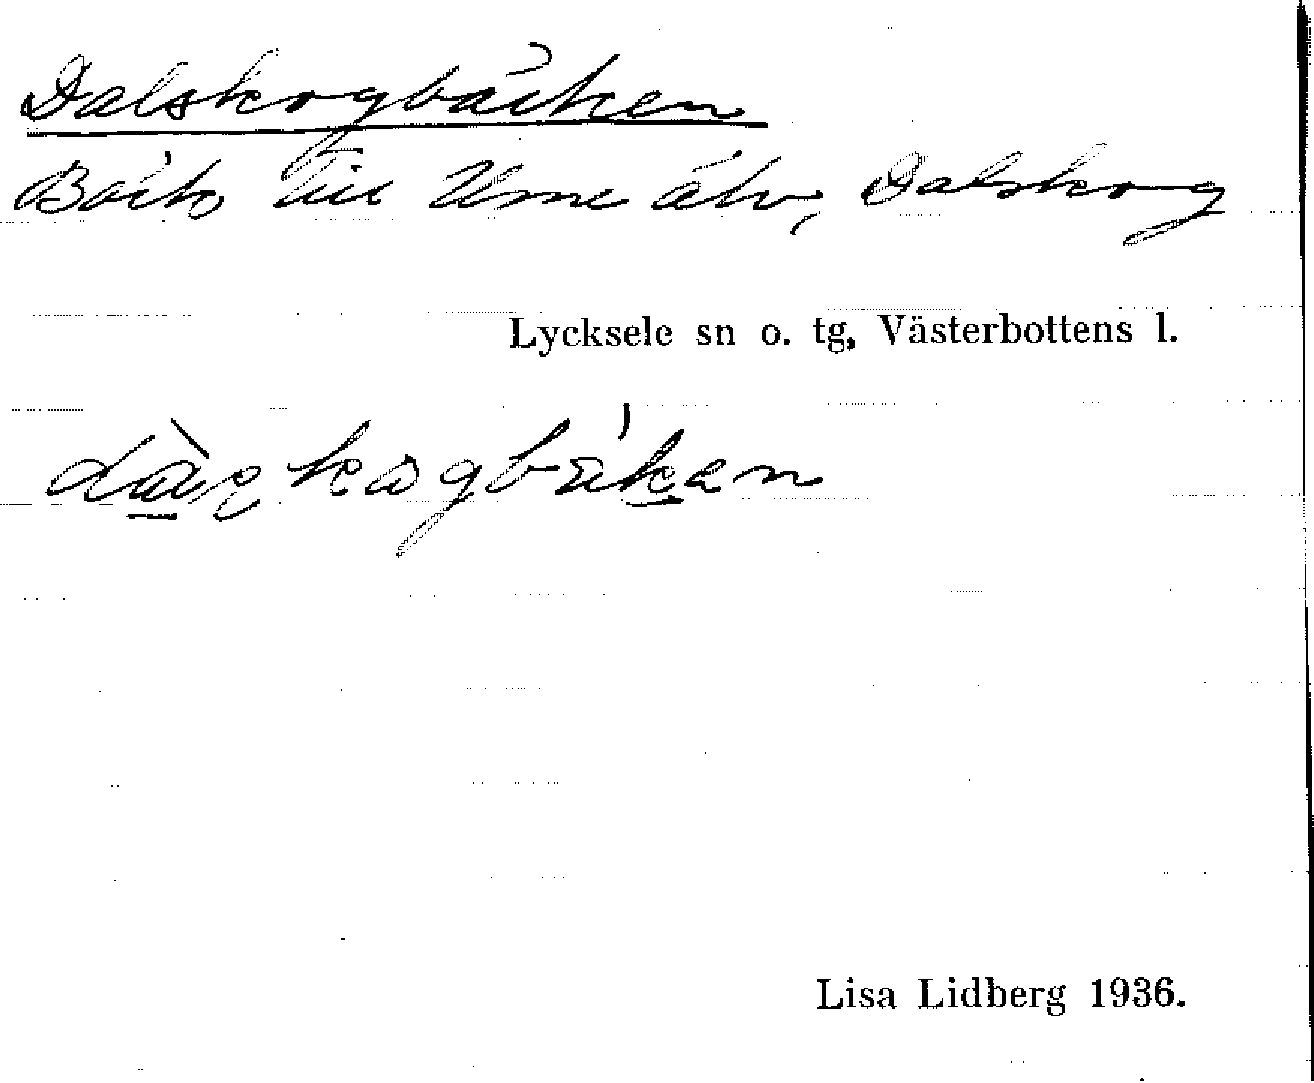 Dalskogbäcken
Bäck till Ume älv, Dalskog
Lycksele sn o. tg, Västerbottens l.
Lisa Lidberg 1936.